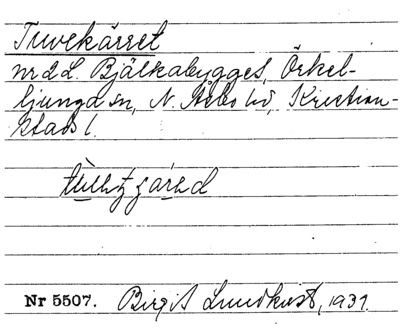 Tuvekärret
nr 2 L. Bjälkabygget, Örkel-
ljunga sn, N. Åsbo hd, Kristian-
stads l.
Nr 5507. Birgit Lundkvist, 1931.